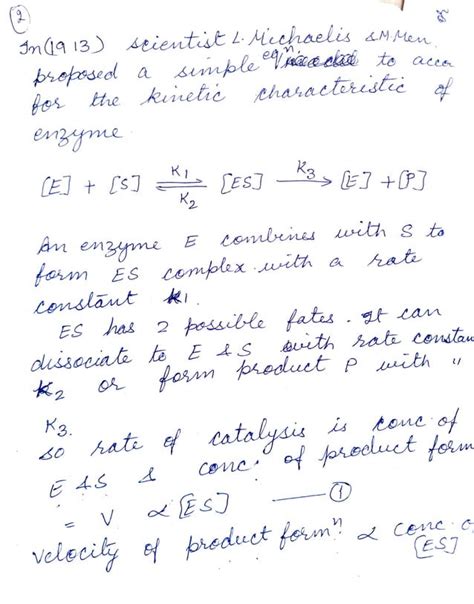 ②
In (1913) scientist L. Michaelis & M Men
proposed a simple eqⁿ to acco
for the kinetic characteristic of
enzyme
[E] + [S] ⇌ [ES] → [E] + [P]
K1 K2 K3
An enzyme E combines with S to
form ES complex with a rate
constant k1.
ES has 2 possible fates. It can
dissociate to E & S with rate constan
k2 or form product P with "
K3.
so rate of catalysis is conc of
E & S & conc. of product form
= V ∝ [ES] —— ①
velocity of product formⁿ. ∝ conc o
[ES]